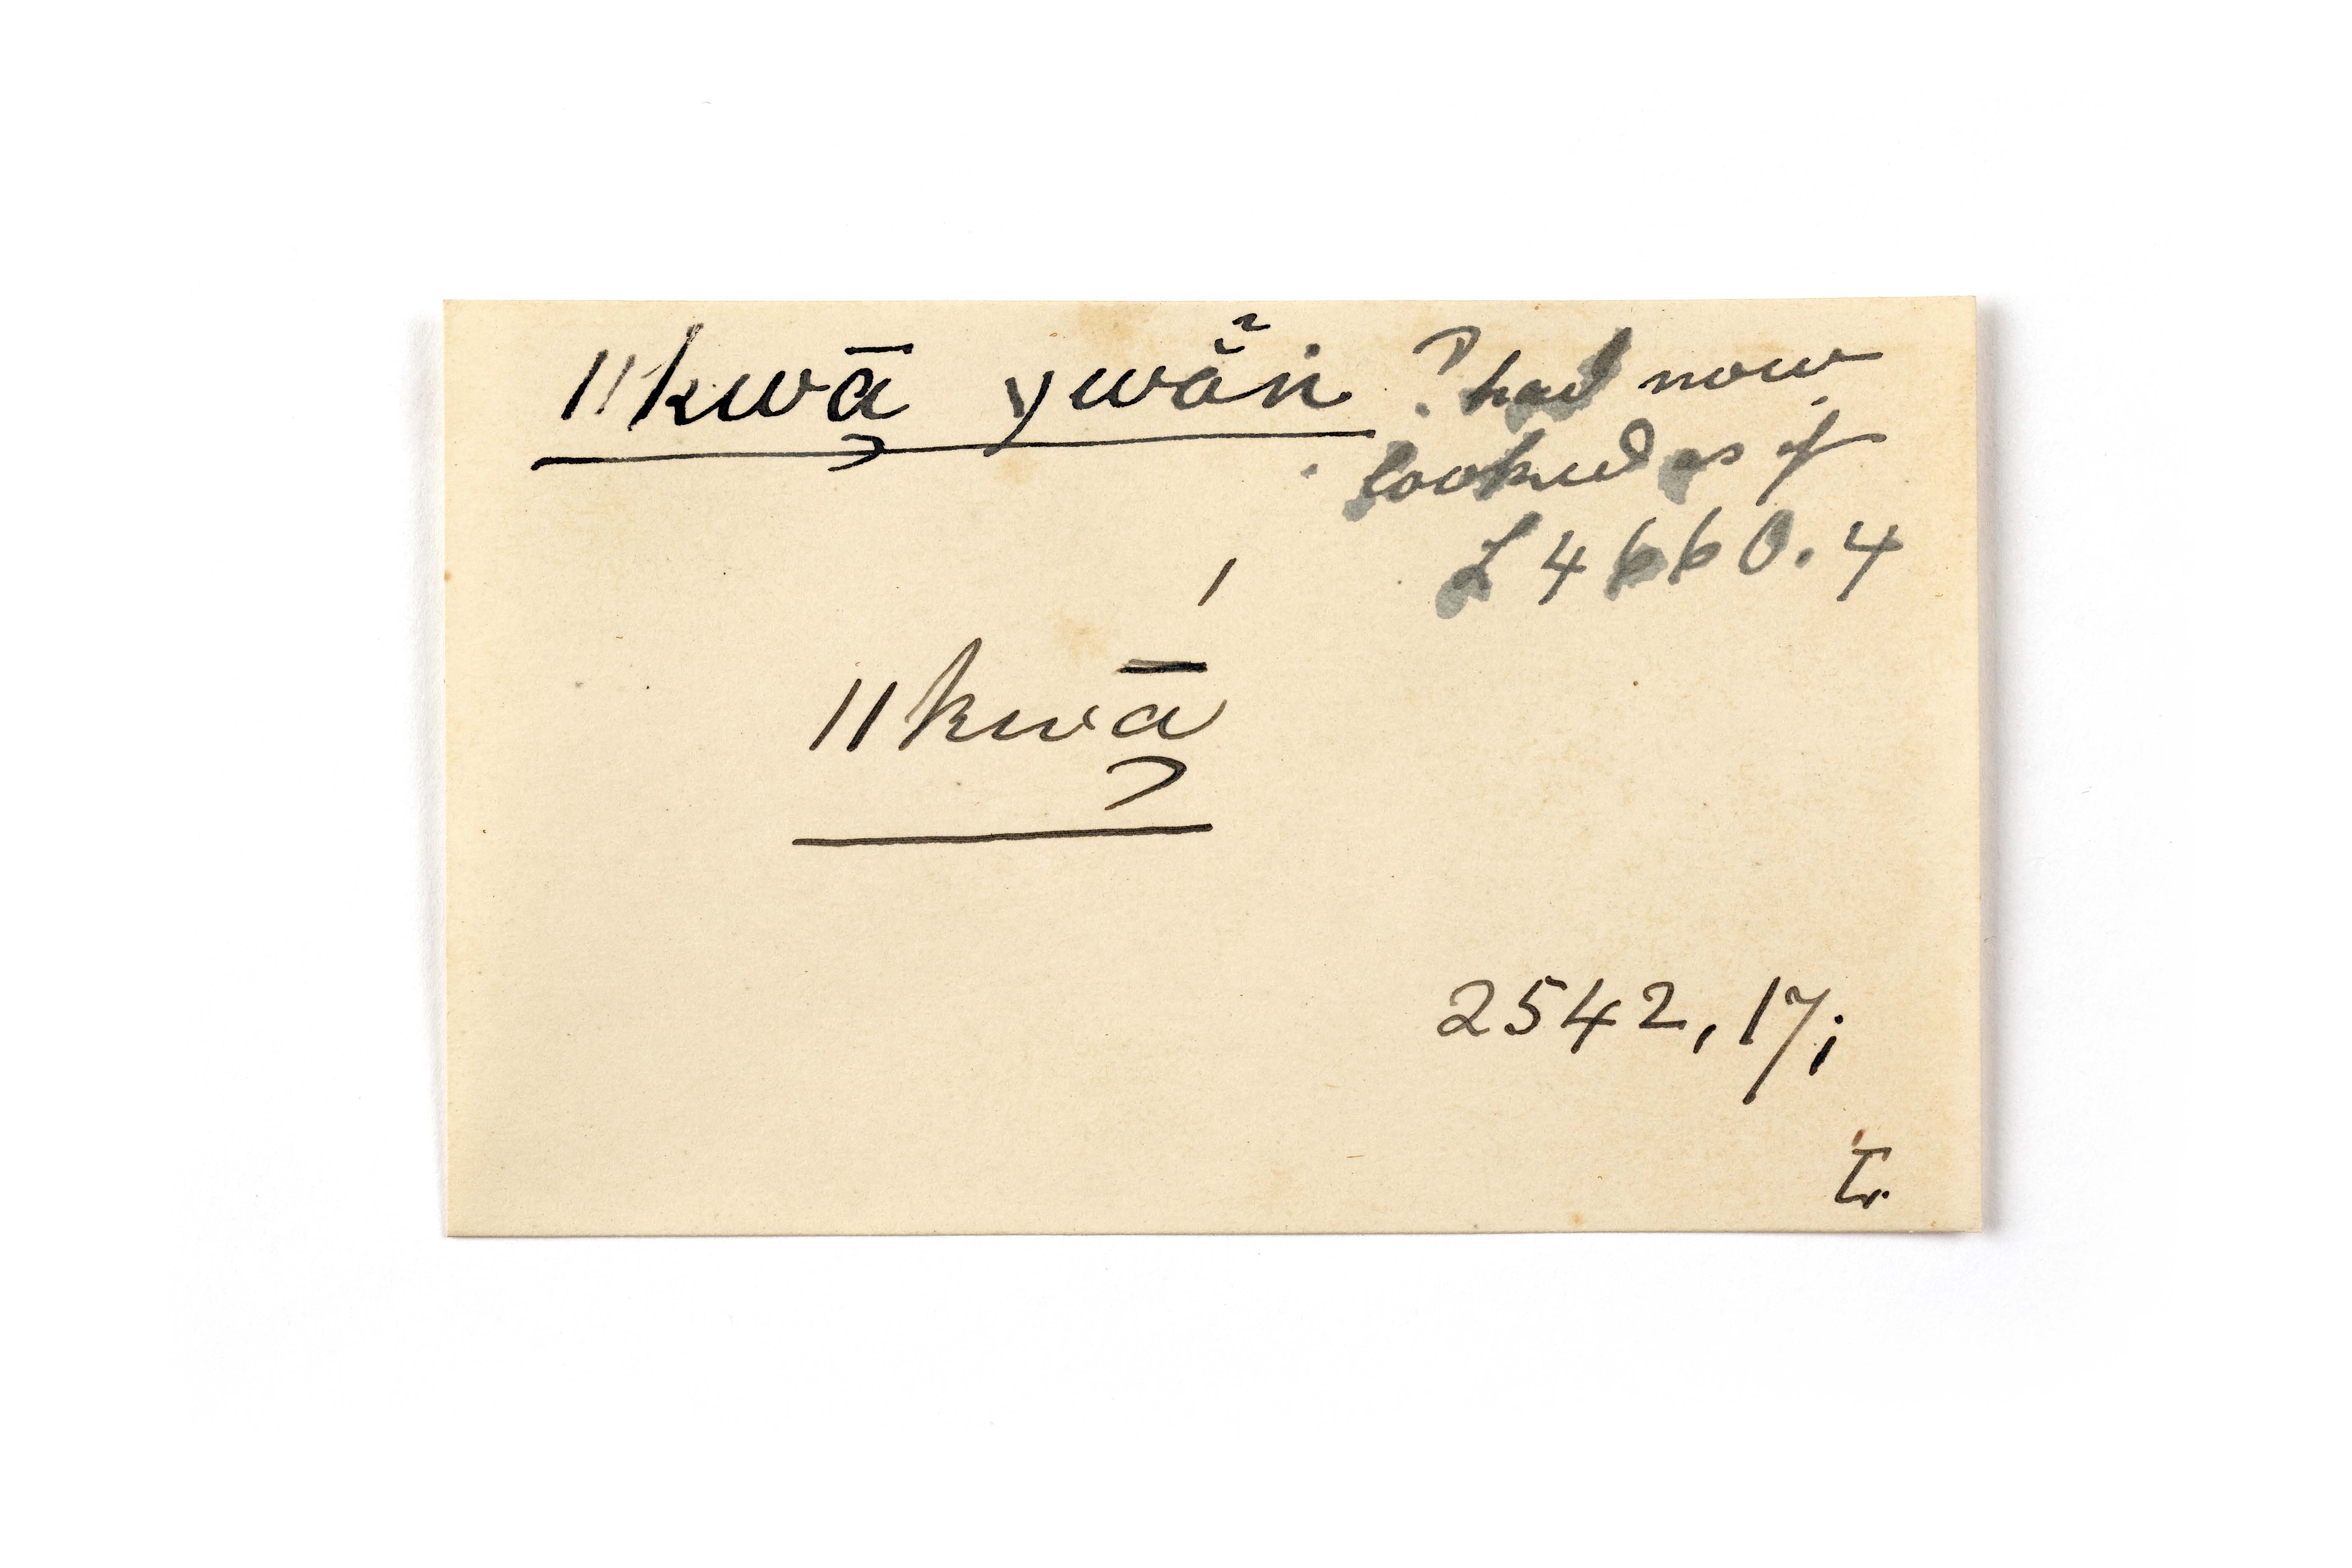 ǁkwā̠ ywăn̄ ? had now
looked as if
L 4660.4
ǁkwā́
2542, 17;